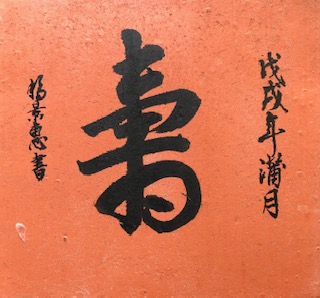 戊戌年蒲月
壽
景惠書